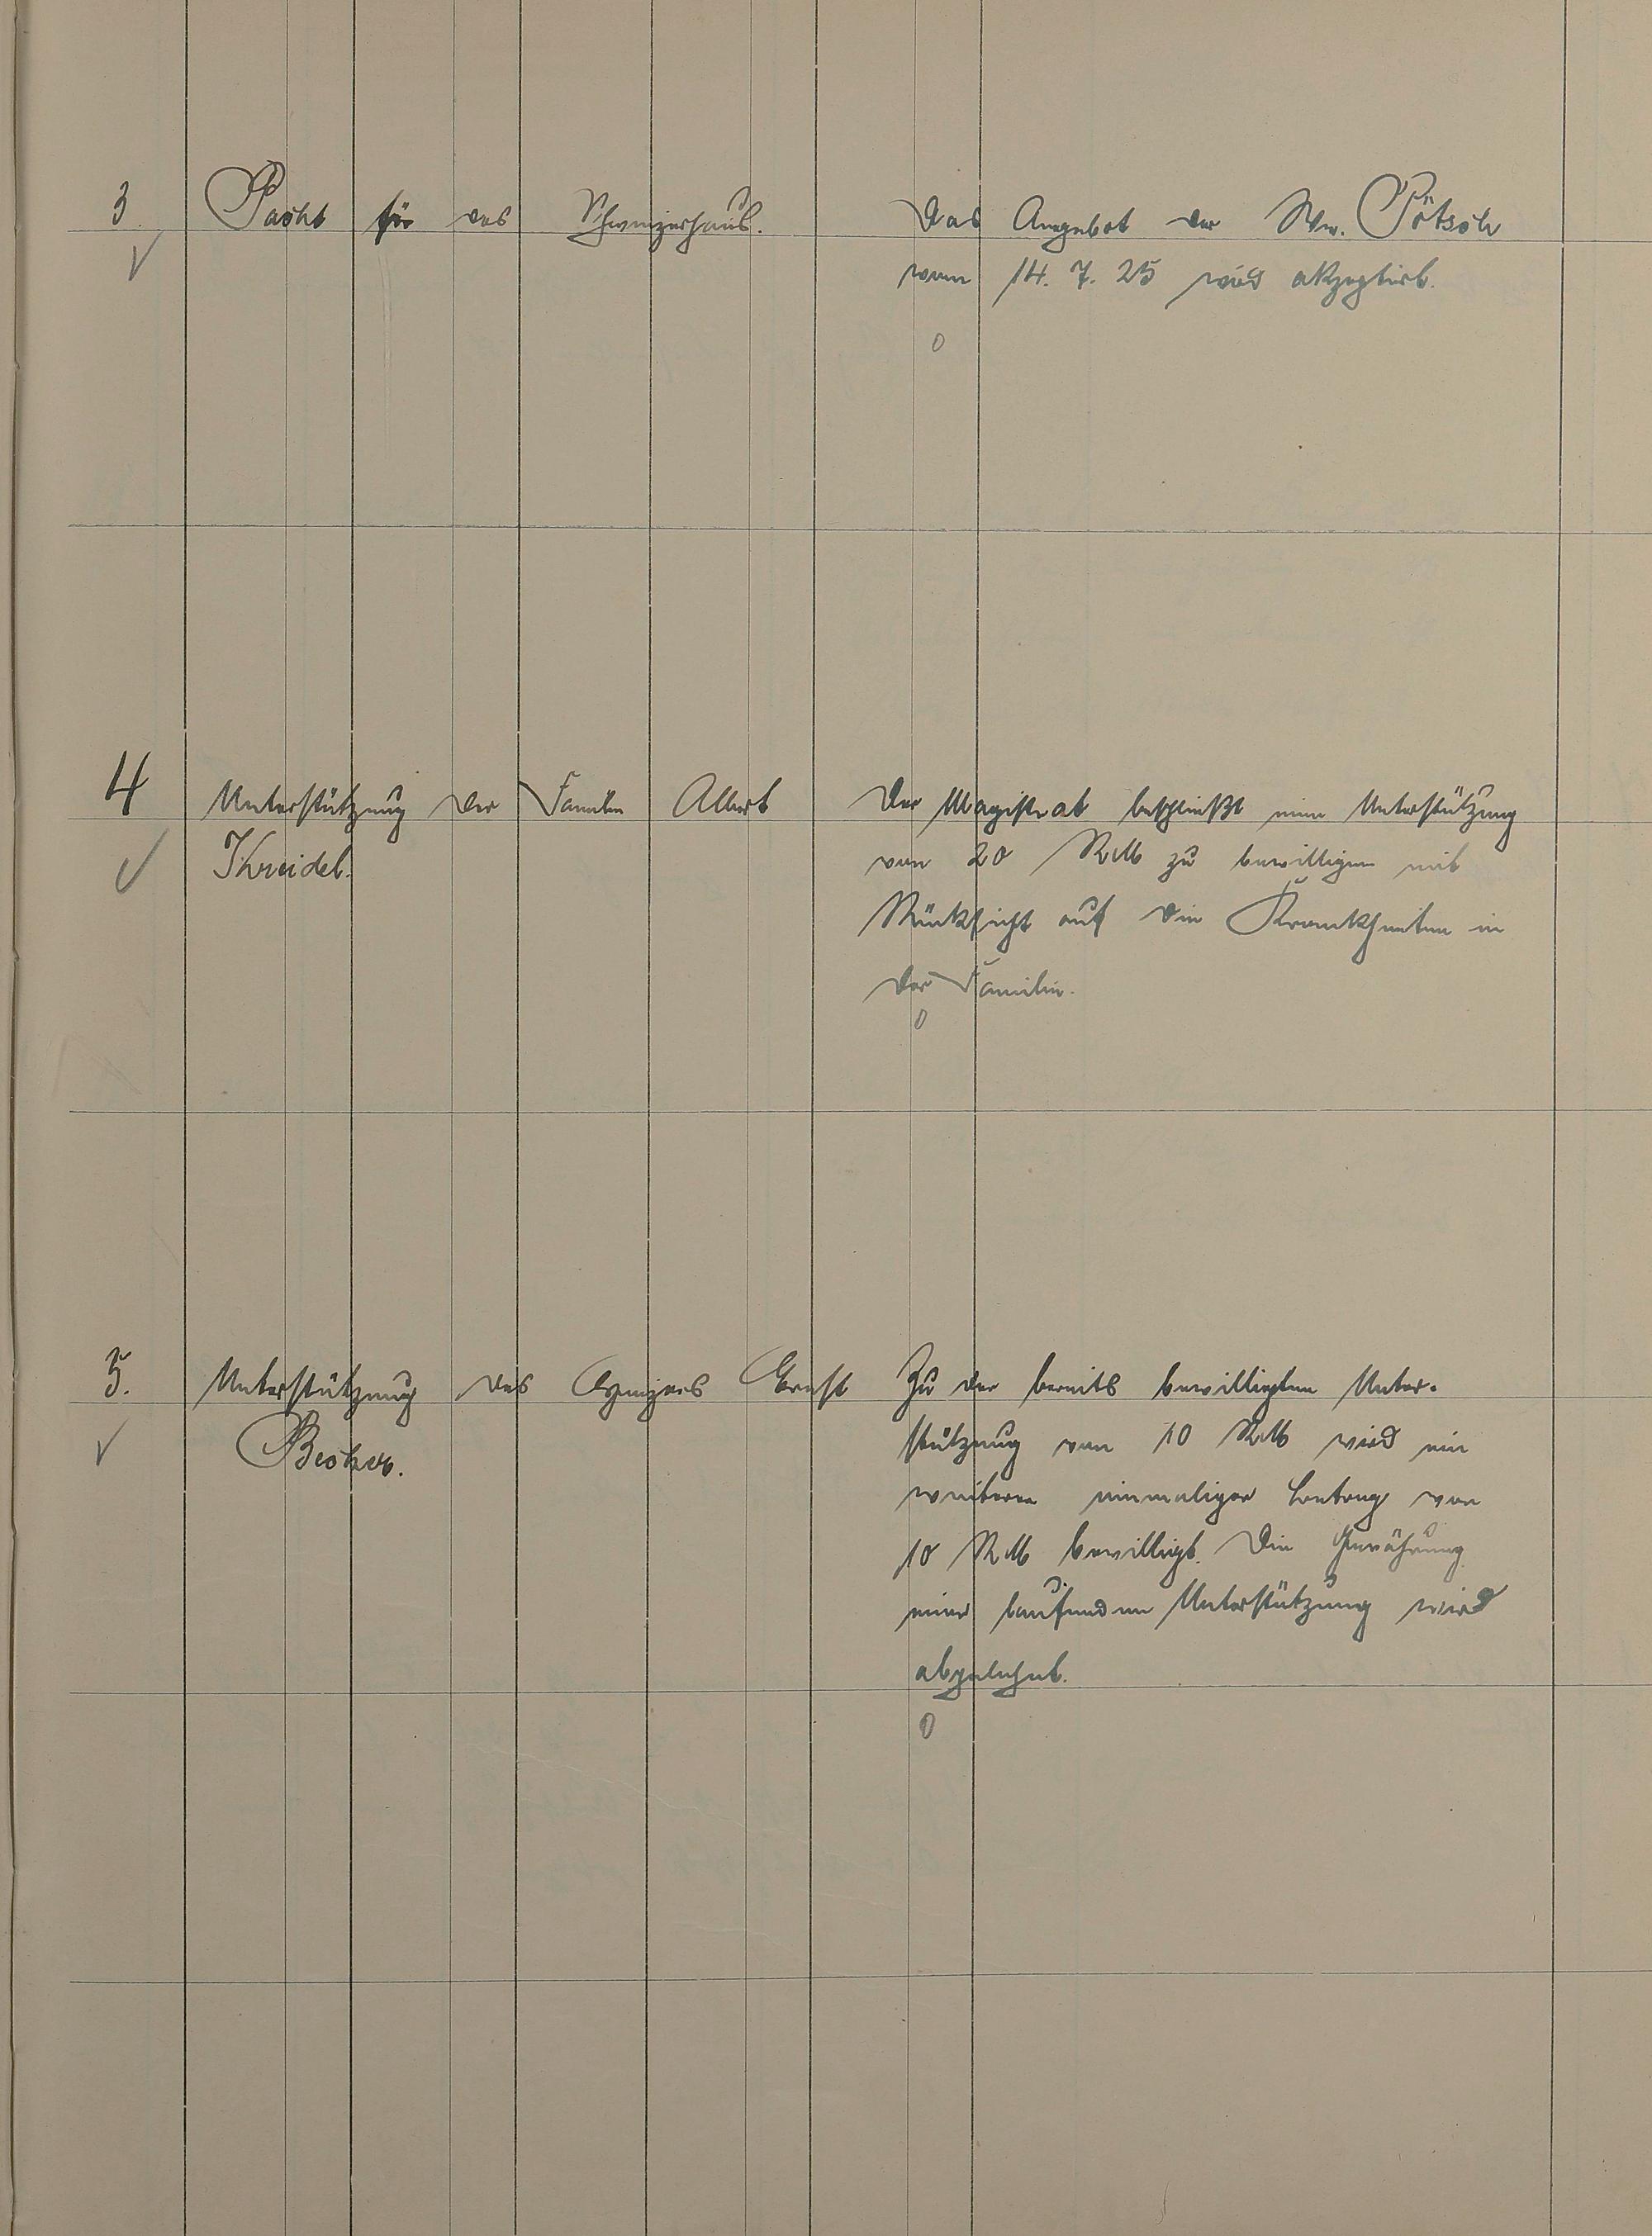 3. Pacht für das Schweizerhaus.
Das Angebot der Ww. Pötsch
vom 14. 7. 25 wird akzeptiert.
4 Unterstützung der Familie Albert
Kreidel.
Der Magistrat beschließt eine Unterstützung
von 20 RM zu bewilligen mit
Rücksicht auf die Krankheiten in
der Familie.
5. Unterstützung des Ernst
Becher.
Zu der bereits bewilligten Unter-
stützung von 10 RM wird ein
weiterer einmaliger Betrag von
10 RM bewilligt. Die Gewährung
einer laufenden Unterstützung wird
abgelehnt.